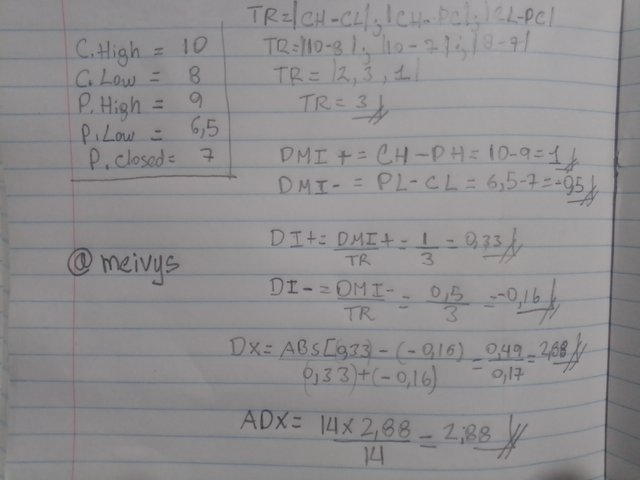 C.High = 10
C.Low = 8
P.High = 9
P.Low = 6,5
P.closed = 7
@meivys
TR=|CH-CL|;|CH-PC|;|CL-PC|
TR=|10-8|;|10-7|;|8-7|
TR=|2,3,1|
TR=3
DMI+ = CH-PH=10-9=1
DMI- = PL-CL = 6,5-7=-0,5
DI+= DMI+/TR = 1/3 = 0,33
DI-= DMI-/TR = 0,5/3 = -0,16
DX= ABS[0,33)-(-0,16)/(0,33)+(-0,16) = 0,49/0,17 = 2,88
ADX= 14x2,88/14 = 2,88